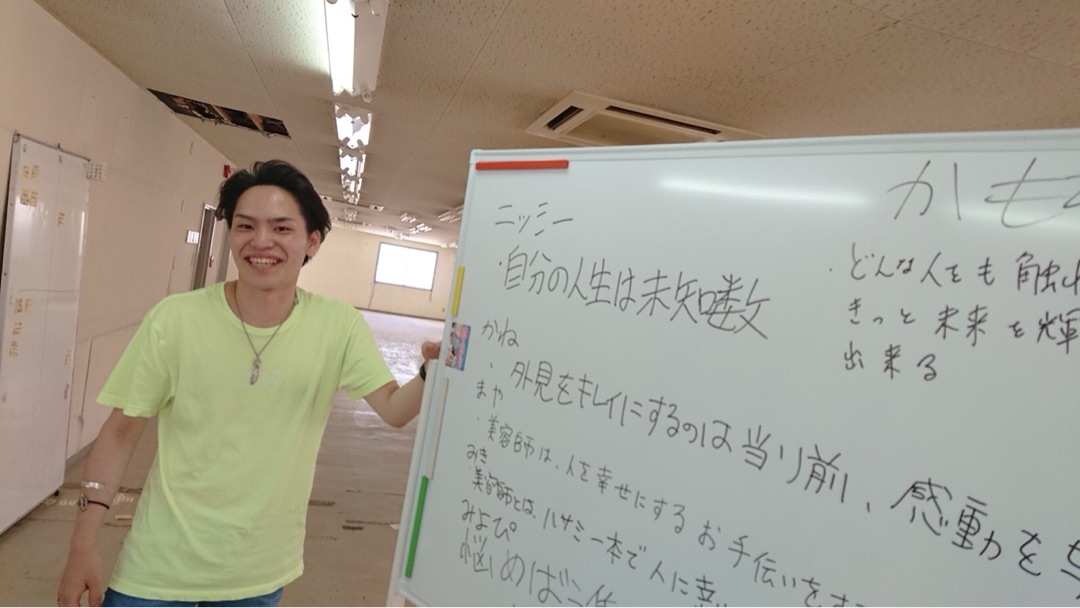 かも
ニッシー
・自分の人生は未知数
・どんな人をも触れ
きっと未来を輝
出来る
かね
・外見をキレイにするのは当り前、感動を
まや
・美容師は、人を幸せにするお手伝いを
みき
・美容師とは、ハサミ一本で人に
みよぴ
悩めば